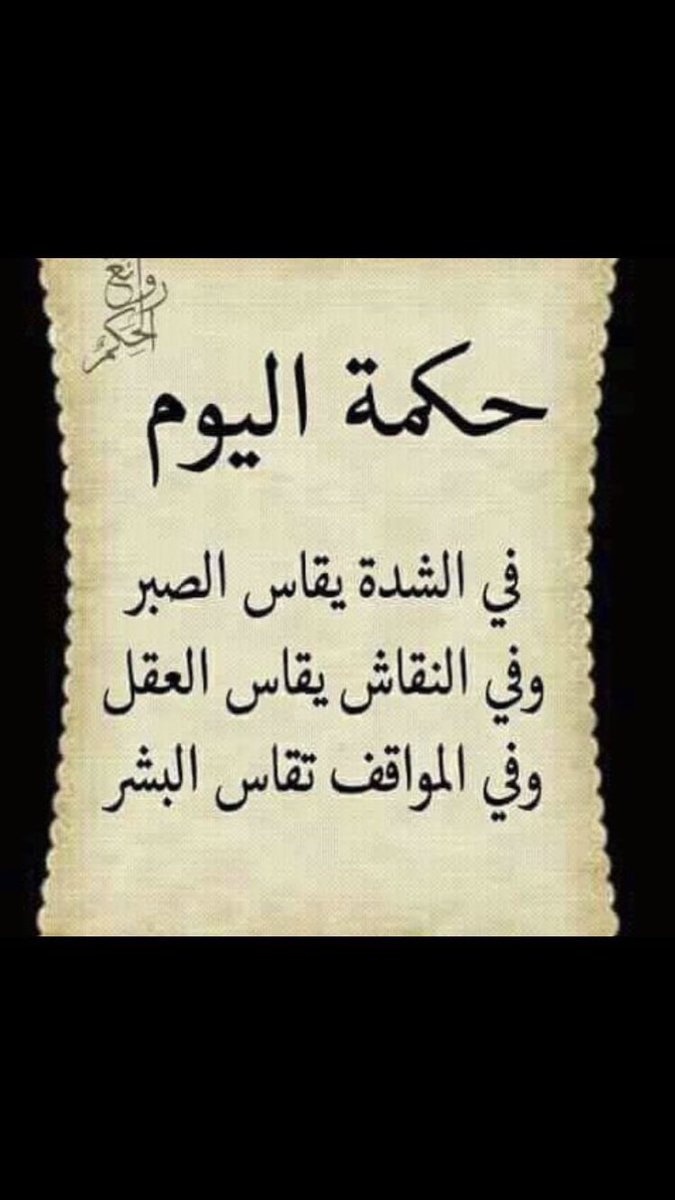 روائع
الحكم
حكمة اليوم
في الشدة يقاس الصبر
وفي النقاش يقاس العقل
وفي المواقف تقاس البشر